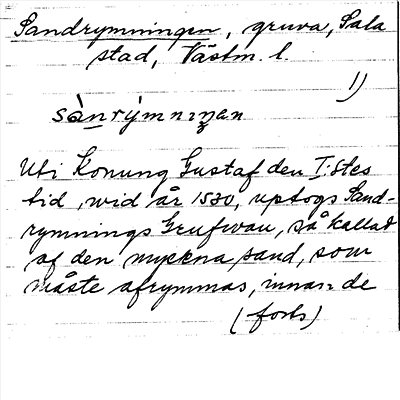 Sandrymningen, gruva, Sala
stad, Västm. l.
1)
sànrýmnıŋan
Uti Konung Gustaf den I:stes
tid, wid år 1530, uptogs Sand-
rymnings Grufwan, så kallad
af den myckna sand, som
måste afrymmas, innan de
(forts)